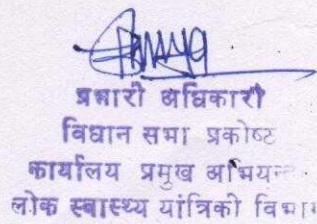 प्रभारी अधिकारी
विधान सभा प्रकोष्ट
कार्यालय प्रमुख अभियन्
लोक स्वास्थ्य यांत्रिकी विभाग